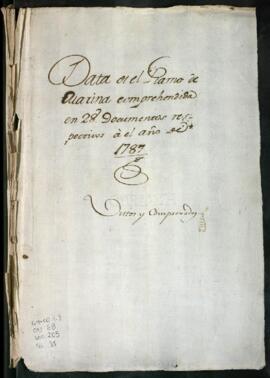 Data en el Ramo de
Marina comprehendida
en 28 Documentos res-
pectivos á el año de
1787
Vistos y Comprovados